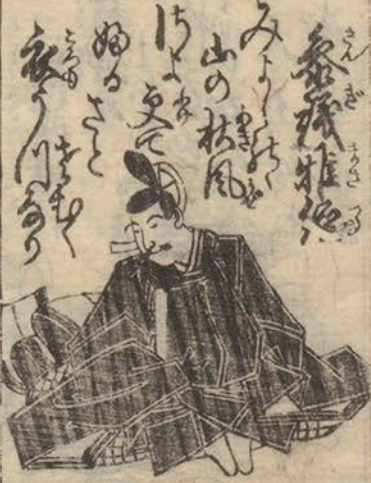 参議雅経
さんぎまさつね
みよしのゝ
山の秋風
さよ更て
ふるさと
さむく
衣うつなり